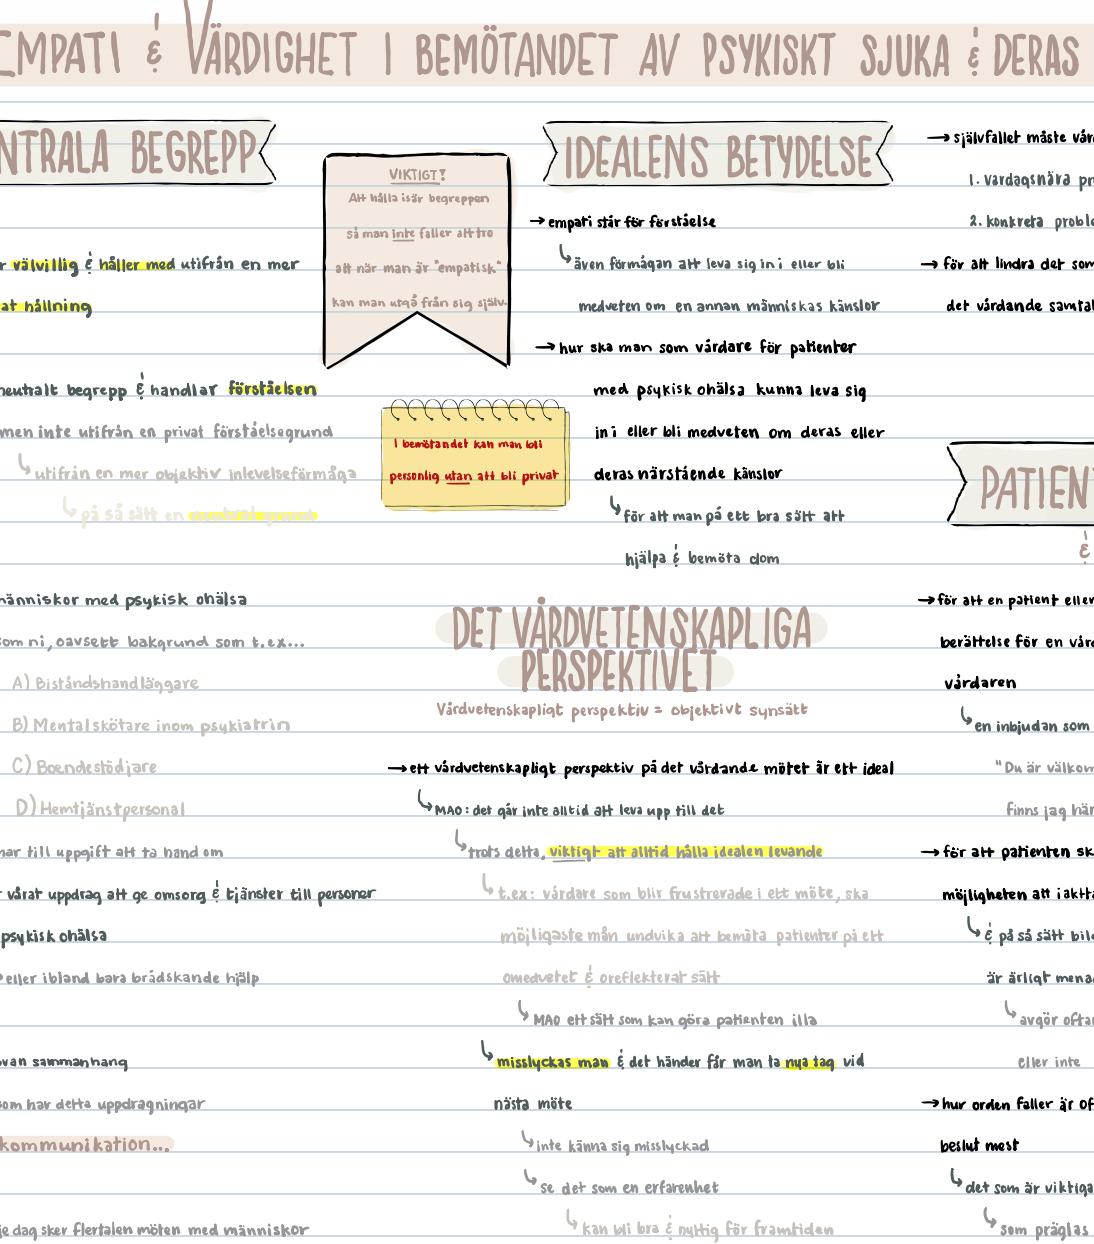 EMPATI & VÄRDIGHET I BEMÖTANDET AV PSYKISKT SJUKA & DERAS
NTRALA BEGREPP
r välvillig & håller med utifrån en mer
at hållning
neutralt begrepp & handlar förståelsen
men inte utifrån en privat förståelsegrund
utifrån en mer objektiv inlevelseförmåga
på så sätt en neutral grund
människor med psykisk ohälsa
som ni, oavsett bakgrund som t.ex...
A) Biståndshandläggare
B) Mentalskötare inom psykiatrin
C) Boendestödjare
D) Hemtjänstpersonal
har till uppgift att ta hand om
r vårat uppdrag att ge omsorg & tjänster till personer
psykisk ohälsa
eller ibland bara brådskande hjälp
ovan sammanhang
som har detta uppdragningar
kommunikation...
je dag sker flertalen möten med människor
VIKTIGT!
Att hålla isär begreppen
så man inte faller att tro
att när man är "empatisk"
kan man utgå från sig själv.
I bemötandet kan man bli
personlig utan att bli privat
IDEALENS BETYDELSE
empati står för förståelse
även förmågan att leva sig in i eller bli
medveten om en annan människas känslor
hur ska man som vårdare för patienter
med psykisk ohälsa kunna leva sig
in i eller bli medveten om deras eller
deras närstående känslor
för att man på ett bra sätt att
hjälpa & bemöta dom
DET VÅRDVETENSKAPLIGA
PERSPEKTIVET
Vårdvetenskapligt perspektiv = objektivt synsätt
ett vårdvetenskapligt perspektiv på det vårdande mötet är ett ideal
MAO: det går inte alltid att leva upp till det
trots detta, viktigt att alltid hålla idealen levande
t.ex: vårdare som blir frustrerade i ett möte, ska
möjligaste mån undvika att bemöta patienter på ett
omedvetet & oreflekterat sätt
MAO ett sätt som kan göra patienten illa
misslyckas man & det händer får man ta nya tag vid
nästa möte
inte känna sig misslyckad
se det som en erfarenhet
kan bli bra & nyttig för framtiden
självfallet måste vår
1. Vardagsnära pr
2. konkreta proble
för att lindra det som
det vårdande samtal
PATIEN
&
för att en patient eller
berättelse för en vår
vårdaren
en inbjudan som
"Du är välkom
finns jag här
för att patienten sk
möjligheten att iaktta
& på så sätt bild
är ärligt mena
avgör oftar
eller inte
hur orden faller är of
beslut mest
det som är viktiga
som präglas